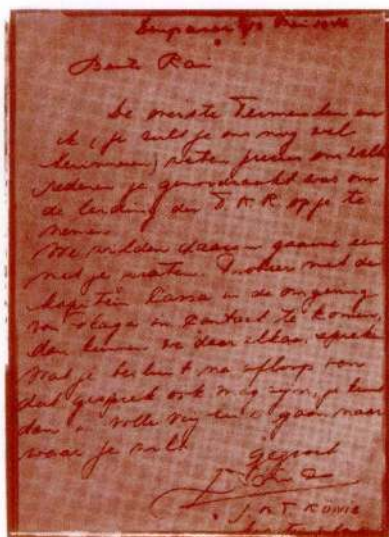 Denpasar 9/5 Mei 1946
Beste Rai
De overste Termeulen en
ik (je zult je ons nog wel
herinneren) weten precies om welke
redenen je genoodzaakt was om
de leiding der T.K.R. op je te
nemen.
We wilden daarom gaarne eens
met je praten. Probeer met de
kapitein Cassa in de omgeving
van Plaga in contact te komen,
dan kunnen we daar elkaar spreken
Wat je besluit na afloop van
dat gesprek ook mag zijn, je kunt
dan in volle vrijheid gaan naar
waar je wilt.
gegroet
J.B.T. König